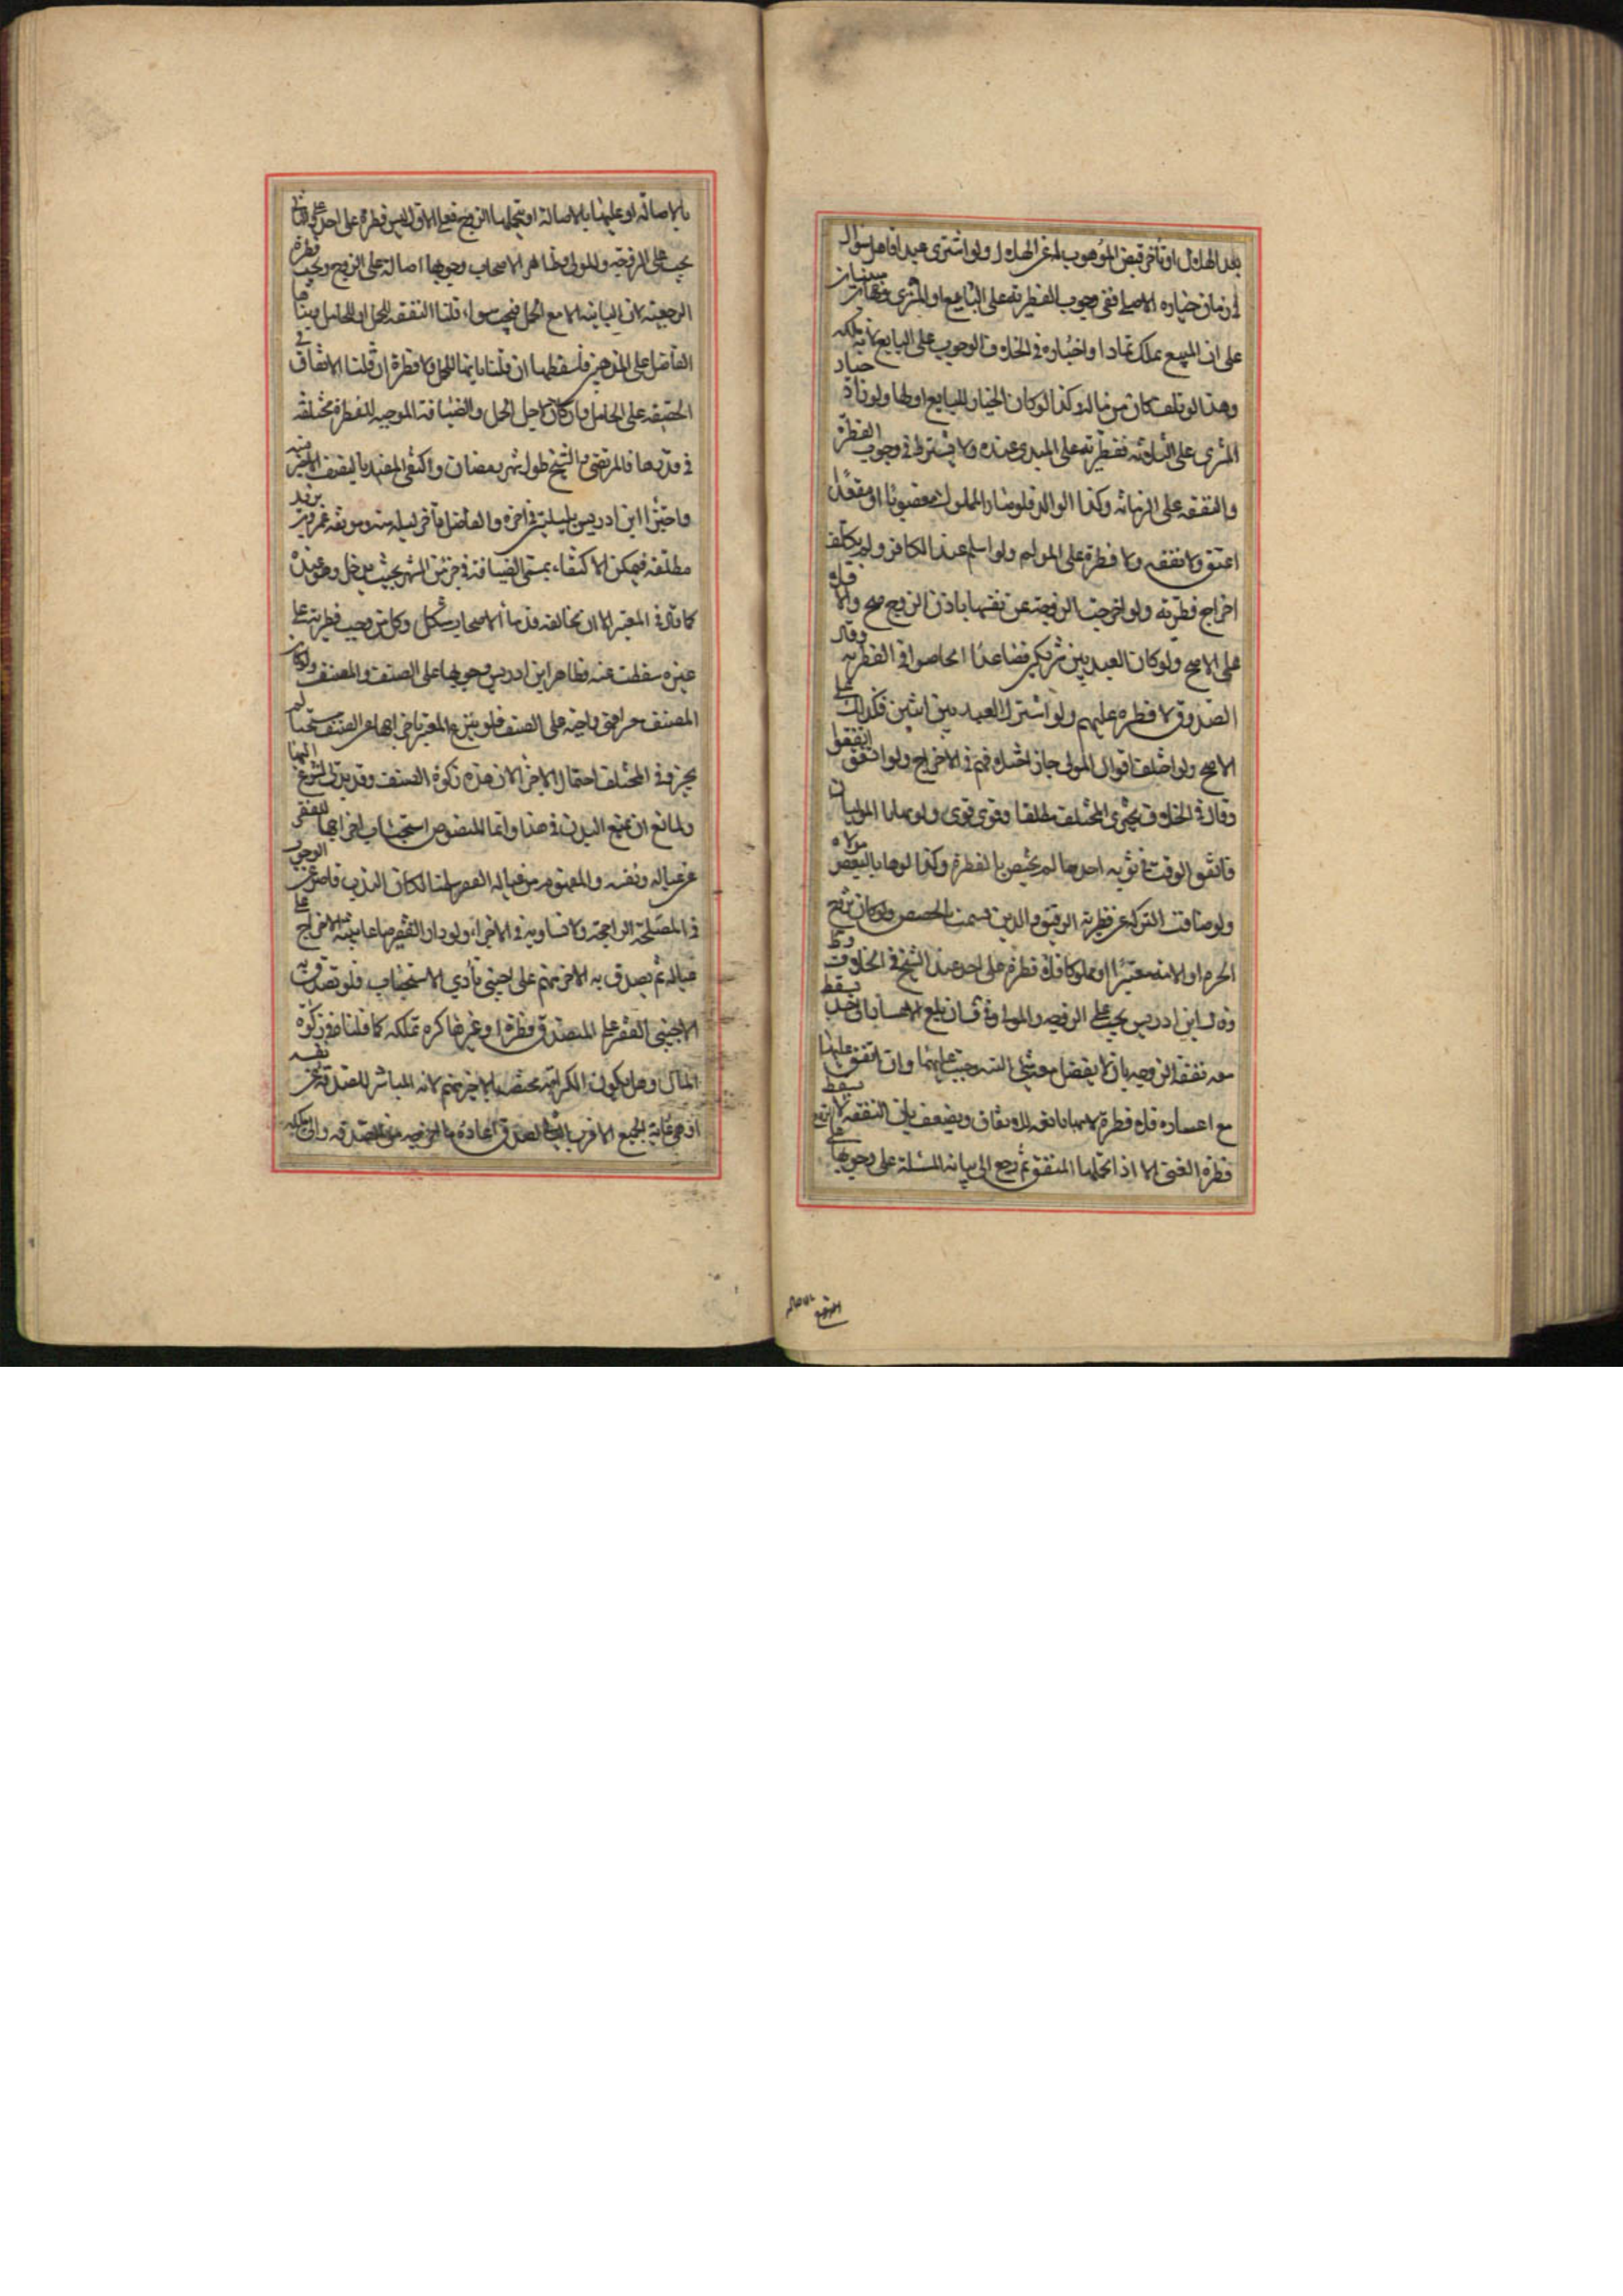 بعد الهلال او تأخر قبض الموهوب له عن الهلال ولو اشترى عبدا فاهل شوال
في زمان خياره الاصلي ففي وجوب الفطرة على البايع او المشتري وجهان مبنيان
على ان المبيع يملك بماذا واختياره في الخلاف الوجوب على البايع لانه ملكه
وهذا لو تلف كان من ماله وكذا لو كان الخيار للبايع او لهما ولو زاد خيار
المشتري على الثلاثة ففطرته على المشتري عنده ولا يشترط في وجوب الفطرة
والنفقة على الزمانة وكذا الوالد فلو صار المملوك مغصوبا او مقعدا
اعتق ولا نفقة ولا فطرة على المولى ولو اسلم عبد الكافر ولم يكلف
اخراج فطرته ولو اخرجت الزوجة عن نفسها باذن الزوج صح والا فلا
على الاصح ولو كان العبد بين شريكين فصاعدا تحاصوا في الفطرة وقال
الصدوق لا فطرة عليهم ولو اشترك العبد بين اثنين فكذلك على
الاصح ولو اختلف اقوال المولى جاز اختلافهم في الاخراج ولو اتفق اتفقوا
وقال في الخلاف يجزي المختلف مطلقا وهو قوي ولو هايا الموليان
فاتفق الوقت في نوبة احدهما لم يختص بالفطرة وكذا لو هايا البعض مولاه
ولو ضاقت التركة عن فطرة الرقيق والدين قسمت بالحصص ولو كان زوج
الحرة او الامة معسرا او مملوكا فلا فطرة على احد عند الشيخ في الخلاف
وقال ابن ادريس يجب على الزوجة والمولى
معه نفقة الزوجة بان لا يفضل معه شيء
مع اعساره فلا فطرة لانها تابعة للانفاق ويضعف بان النفقة لا
فطرة الغني الا اذا تحملها المنفق ثم رجع الى بناء المسئلة على وجوبها على
بالاصالة او عليهما بالاصالة او يتحملها الزوج فعلى الاول ليس فطرة على احد وعلى الثاني
يجب على الزوجة والمولى وظاهر الاصحاب وجوبها اصالة على الزوج ويجب فطرة
الرجعية لان البائنة الا مع الحمل فيجب سواء قلنا النفقة للحمل او للحامل وبناها
الفاضل على المذهبين فاسقطها ان قلنا بانها للحمل ولا فطرة ان قلنا الانفاق في
الحقيقة على الحامل وان كان لاجل الحمل والضيافة الموجبة للفطرة مختلفة
في قدرها فالمرتضى والشيخ طول شهر رمضان واكتفى المفيد بالنصف الاخير منه
واجتزا ابن ادريس بليلتين في اخره والفاضل بآخر ليلة منه وموثقة عمر بن يزيد
مطلقة فيمكن الاكتفاء بمسمى الضيافة في جزء من الشهر بحيث يدخل وهو عنده
كما قال في المعتبر الا ان مخالفة قدماء الاصحاب مشكل وكل من وجبت فطرته على
غيره سقطت عنه فظاهر ابن ادريس وجوبها على الضيف والمضيف ولو كان
المضيف
يجزي في المختلف احتمال الاجزاء لان هذه زكوة الضيف وقد
ولمانع ان يمنع الندب في هذا وانما المنصوص استحباب اخراجها للفقير
عن عياله ونفسه والمفهوم من عياله الفقراء سلمنا لكان الندب قاصر عن الوجوب
في المصلحة الراجحة ولا تساويه في الاجزاء ولو دار الفقير صاعا بنية الاخراج على
عياله ثم يصدق به الآخر منهم على اجنبي تأدي الاستحباب فلو تصدق به
الاجنبي الفقير على المتصدق فطرة او غيرها كره تملكه كما قلناه في زكوة
المال وهل يكون الكراهة مختصة بالاخير منهم لانه المباشر للصدقة عن نفسه